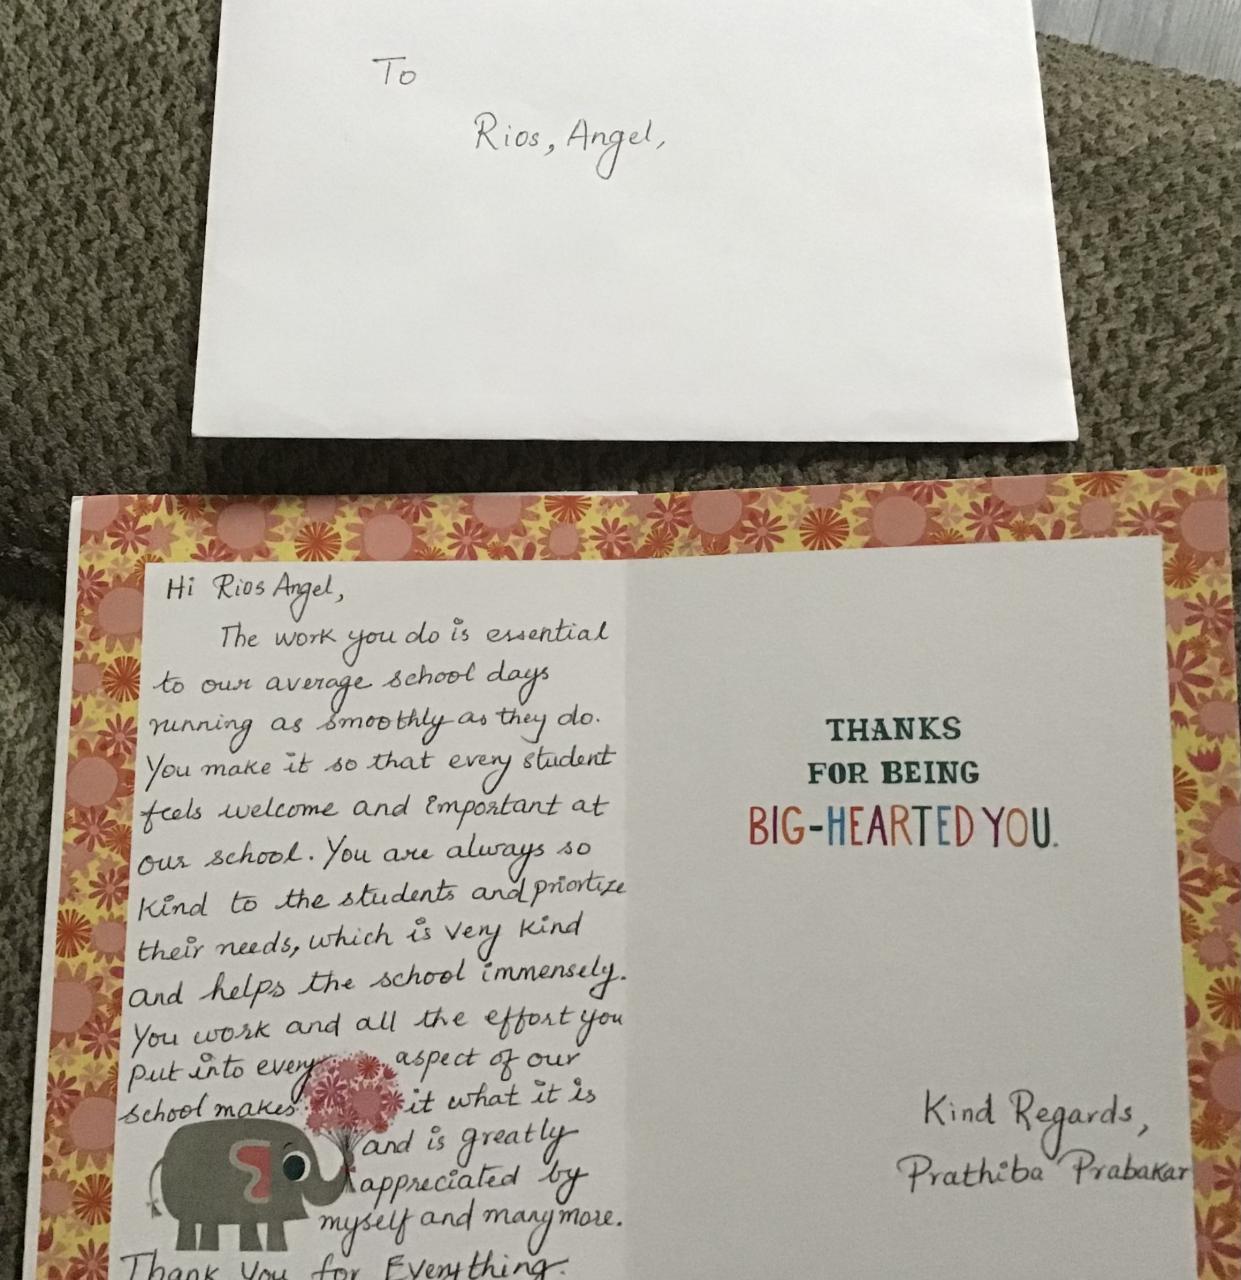 To
Rios, Angel,
Hi Rios Angel,
The work you do is essential
to our average school days
running as smoothly as they do.
You make it so that every student
feels welcome and important at
our school. You are always so
kind to the students and priortize
their needs, which is very kind
and helps the school immensely.
You work and all the effort you
put into every aspect of our
school makes it what it is
and is greatly
appreciated by
myself and many more.
Thank You for Everything.
THANKS
FOR BEING
BIG-HEARTED YOU.
Kind Regards,
Prathiba Prabakar